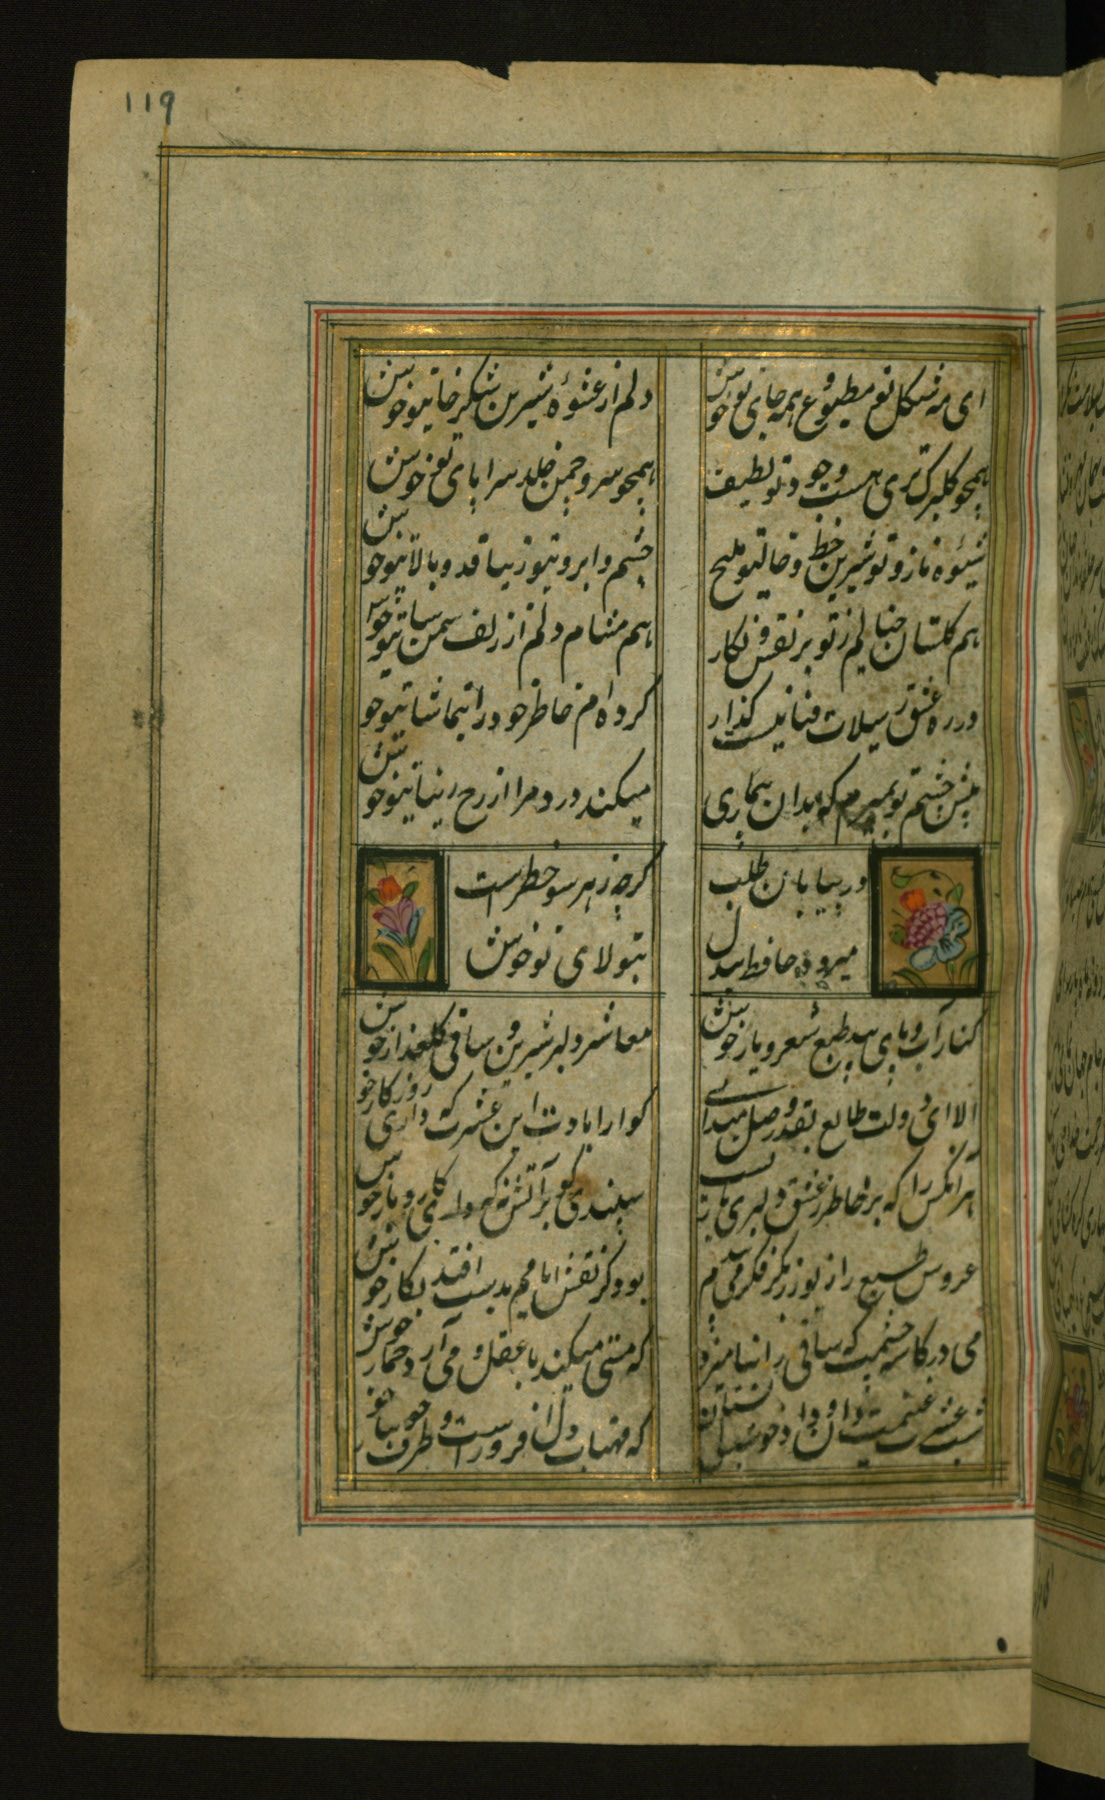 ۱۱۹
ای همه شکل تو مطبوع و همه جای تو خوش
دلم از عشوهٔ شیرین شکرخای تو خوش
همچو گلبرگ تری هست وجود تو لطیف
همچو سرو چمن خلد سراپای تو خوش
شیوه ناز تو شیرین خط و خال تو ملیح
چشم و ابروی تو زیبا قد و بالای تو خوش
هم گلستان خیالم ز تو پر نقش و نگار
هم مشام دلم از زلف سمن سای تو خوش
در ره عشق ز سیلاب فنا نیست گذار
کرده ام خاطر خود را بتماشای تو خوش
پیش چشم تو بمیرم که بدان بیماری
میکند درد مرا از رخ زیبای تو خوش
در بیابان طلب
گرچه ز هر سو خطر است
میرود حافظ بیدل
بتولای تو خوش
کنار آب و پای بید و طبع شعر و یار خوش
معاشر دلبر شیرین و ساقی گلعذار خوش
الا ای دولت طالع که قدر وصل میدانی
گوارا بادت این عشرت که داری روزگار خو
هر آنکس را که بر خاطر ز عشق دلبری باریست
سپندی گو بر آتش نه که داری کار و بار خوش
عروس طبع را زیور ز فکر بکر می بندم
بود کز نقش ایامم بدست افتد نگار خوش
می در کاسه چشمست که ساقی را بنامیزد
که مستی میکند با عقل و می آرد خمار خوش
شب عشرت غنیمت دان و داد خوشدلی بستان
که مهتاب دل افروزست و طرف جویبار خو